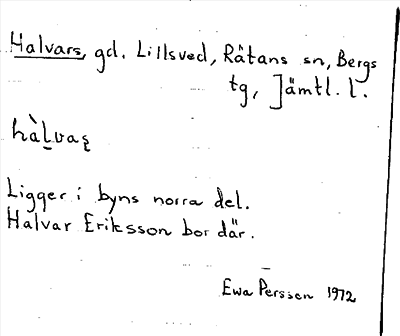 Halvars, gd. Lillsved, Rätans sn, Bergs
tg, Jämtl. l.
hàlvaȿ
Ligger i byns norra del.
Halvar Eriksson bor där.
Ewa Persson 1972